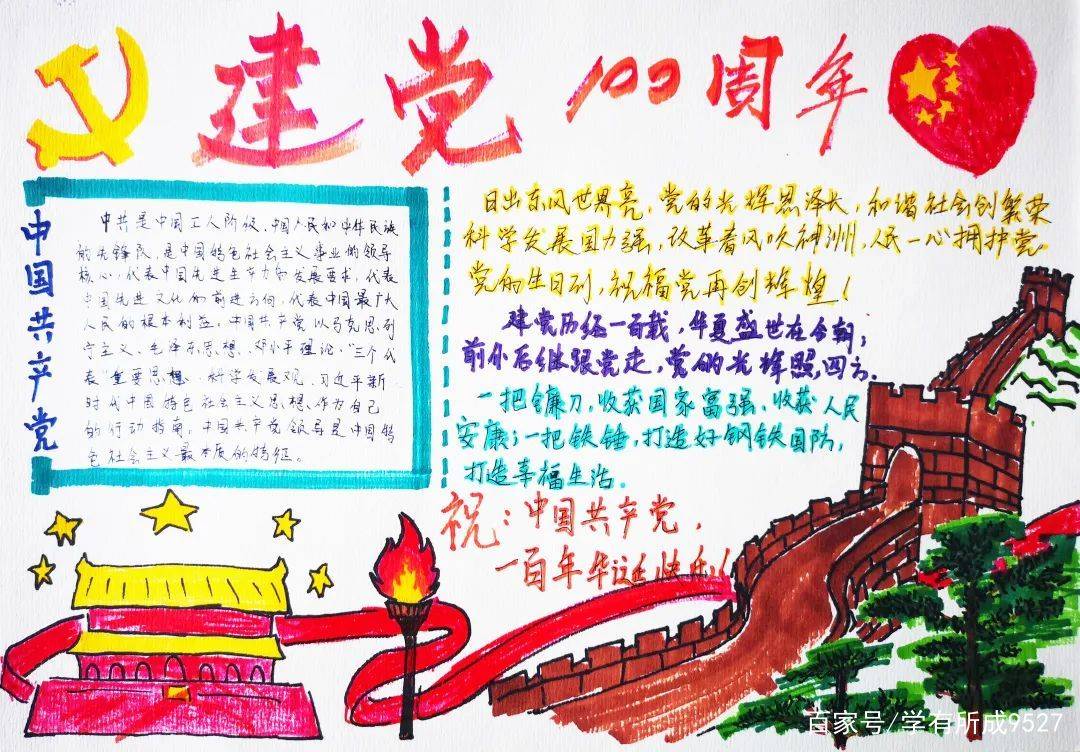 建党 100周年
中国共产党
中共是中国工人阶级、中国人民和中华民族
的先锋队,是中国特色社会主义事业的领导
核心,代表中国先进生产力的发展要求,代表
中国先进文化的前进方向,代表中国最广大
人民的根本利益。中国共产党以马克思列
宁主义、毛泽东思想、邓小平理论、“三个代
表”重要思想、科学发展观、习近平新
时代中国特色社会主义思想作为自己
的行动指南,中国共产党领导是中国特
色社会主义最本质的特征。
日出东风世界亮,党的光辉恩泽长,和谐社会创繁荣
科学发展国力强,改革春风吹神洲,人民一心拥护党。
党的生日到,祝福党再创辉煌!
建党历经一百载,华夏盛世在今朝;
前仆后继跟党走,党的光辉照四方.
一把镰刀,收获国家富强、收获人民
安康;一把铁锤,打造好钢铁国防,
打造幸福生活.
祝:中国共产党,
一百年华诞快乐!
百家号/学有所成9527